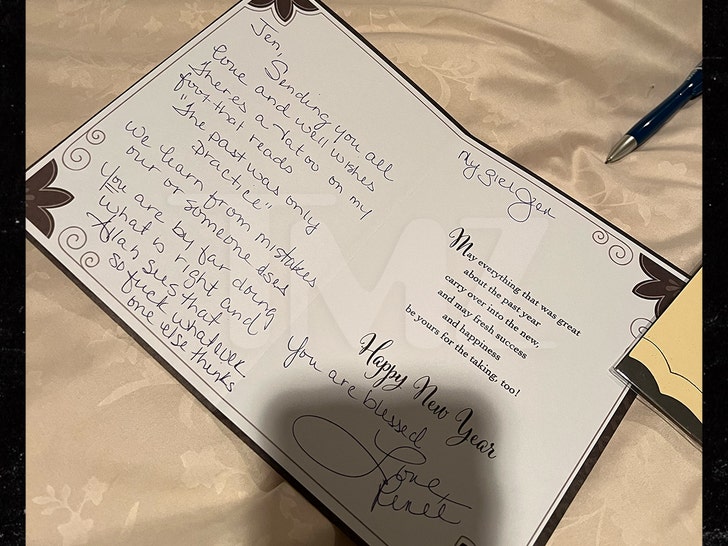 Jen,
Sending you all
love and well wishes
Theres a tatoo on my
foot that reads
"The past was only
practice"
We learn from mistakes
our or someone elses
You are by far doing
what is right and
Allah sees that
so fuck whatever
one else thinks
My girl Jen
May everything that was great
about the past year
carry over into the new,
and may fresh success
and happiness
be yours for the taking, too!
Happy New Year
You are blessed
Love,
Renee
TMZ